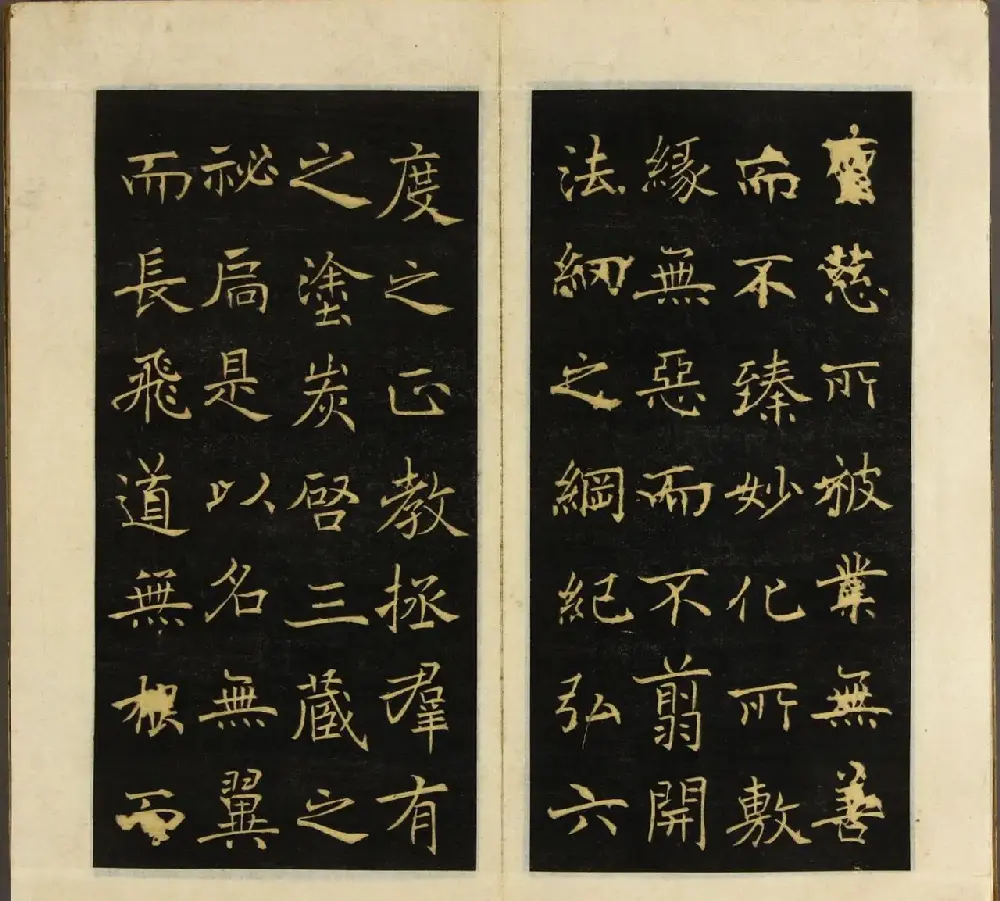 慈所被業無善
而不臻妙化所敷
緣無惡而不翦開
法網之綱紀弘六
度之正教拯羣有
之塗炭啓三藏之
祕扃是以名無翼
而長飛道無根而